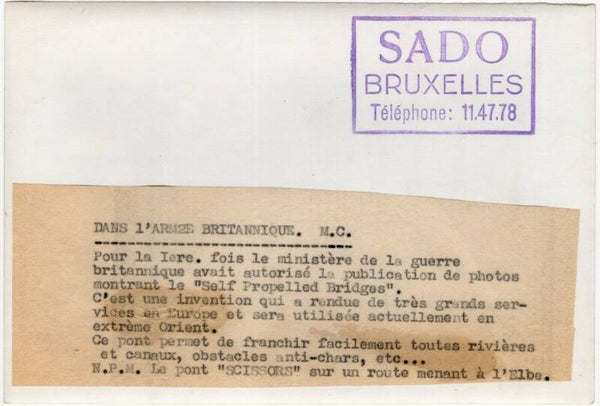 SADO
BRUXELLES
Téléphone: 11.47.78
DANS l'ARM2E BRITANNIQUE. M.C.
Pour la Iere. fois le ministère de la guerre
britannique avait autorisé la publication de photos
montrant le "Self Propelled Bridges".
C'est une invention qui a rendue de très grands ser-
vices en Europe et sera utilisée actuellement en
extrème Orient.
Ce pont permet de franchir facilement toutes rivières
et canaux, obstacles anti-chars, etc...
N.P.M. Le pont "SCISSORS" sur un route menant à l'Elbe.